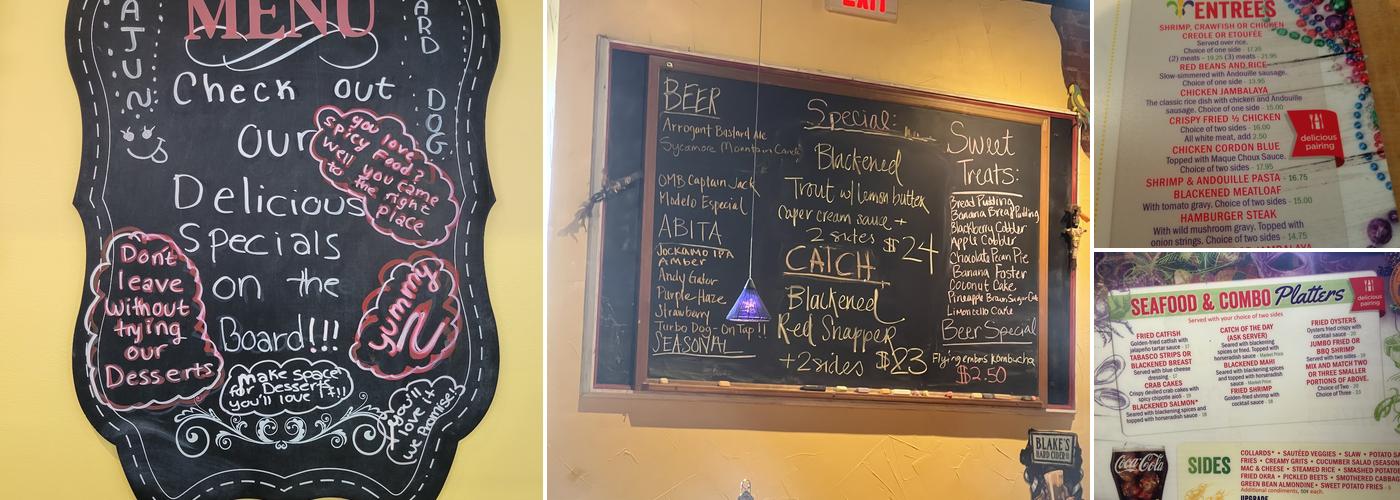 MENU
CAJUN
YARD
DOG
Check out
our
Delicious
Specials
on the
Board!!!
you love
spicy food?
Well you came
to the right
place
Dont
leave
without
trying
our
Desserts
Yummy
make space
for Desserts
you'll love it!!
you'll
love it
we Promise!
EXIT
BEER
Arrogant Bastard Ale
Sycamore Mountain Candy
OMB Captain Jack
Modelo Especial
ABITA
JOCKAMO IPA
AMBER
Andy Gator
Purple-Haze
Strawberry
Turbo Dog - On Tap!!
SEASONAL
Special:
Blackened
Trout w/ lemon butter
caper cream sauce +
2 sides $24
CATCH
Blackened
Red Snapper
+2 sides $23
Sweet
Treats:
Bread Pudding
Banana Bread Pudding
Blackberry Cobbler
Apple Cobbler
Chocolate Pecan Pie
Banana Foster
Coconut Cake
Pineapple Brown Sugar Cake
Limoncello Cake
Beer Special
Flying embrs Kombucha
$2.50
BLAKE'S
HARD CIDER
ENTREES
SHRIMP, CRAWFISH OR CHICKEN
CREOLE OR ETOUFÉE
Served over rice.
Choice of one side - 17.25
(2) meats - 19.25 (3) meats - 21.95
RED BEANS AND RICE
Slow-simmered with Andouille sausage.
Choice of one side - 13.95
CHICKEN JAMBALAYA
The classic rice dish with chicken and Andouille
sausage. Choice of one side - 15.00
CRISPY FRIED ½ CHICKEN
Choice of two sides - 16.00
All white meat, add 2.50
CHICKEN CORDON BLUE
Topped with Maque Choux Sauce.
Choice of two sides - 17.95
SHRIMP & ANDOUILLE PASTA - 16.75
BLACKENED MEATLOAF
With tomato gravy. Choice of two sides - 15.00
HAMBURGER STEAK
With wild mushroom gravy. Topped with
onion strings. Choice of two sides - 14.75
JAMBALAYA
delicious
pairing
SEAFOOD & COMBO Platters
delicious
pairing
Served with your choice of two sides
FRIED CATFISH
Golden-fried catfish with
jalapeño tartar sauce - 17
TABASCO STRIPS OR
BLACKENED BREAST
Served with blue cheese
dressing. - 17
CRAB CAKES
Crispy deviled crab cakes with
spicy chipotle aioli - 18
BLACKENED SALMON*
Seared with blackening spices and
topped with horseradish sauce - 18
CATCH OF THE DAY
(ASK SERVER)
Seared with blackening
spices or fried. Topped with
horseradish sauce - Market Price
BLACKENED MAHI
Seared with blackening spices
and topped with horseradish
sauce - Market Price
FRIED SHRIMP
Golden-fried shrimp with
cocktail sauce - 18
FRIED OYSTERS
Oysters fried crispy with
cocktail sauce - 20
JUMBO FRIED OR
BBQ SHRIMP
Served with two sides - 19
MIX AND MATCH TWO
OR THREE SMALLER
PORTIONS OF ABOVE.
Choice of Two - 20
Choice of Three - 23
Coca-Cola
SIDES
COLLARDS* • SAUTÉED VEGGIES • SLAW • POTATO SA
FRIES • CREAMY GRITS • CUCUMBER SALAD (SEASON
MAC & CHEESE • STEAMED RICE • SMASHED POTATO
FRIED OKRA • PICKLED BEETS • SMOTHERED CABBA
GREEN BEAN ALMONDINE • SWEET POTATO FRIES
Additional condiments, 50¢ each.
UPGRADE